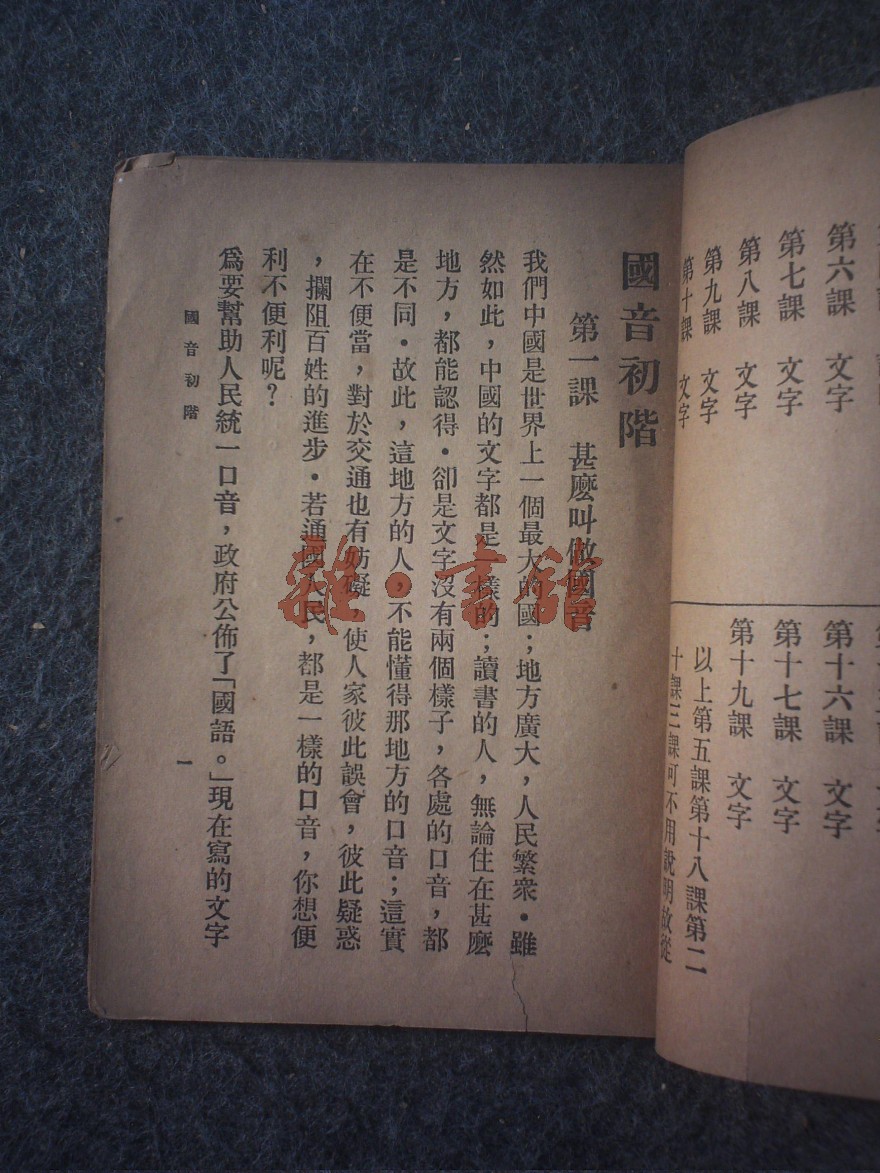 第六課　文字
第七課　文字
第八課　文字
第九課　文字
第十課　文字
第十六課　文字
第十七課　文字
第十九課　文字
以上第五課第十八課第二
十課三課可不用說明故從
國音初階
第一課　甚麽叫做國音
我們中國是世界上一個最大的國；地方廣大，人民繁衆．雖
然如此，中國的文字都是一樣的；讀書的人，無論住在甚麽
地方，都能認得．卻是文字沒有兩個樣子，各處的口音，都
是不同．故此，這地方的人，不能懂得那地方的口音；這實
在不便當，對於交通也有妨礙，使人家彼此誤會，彼此疑惑
，攔阻百姓的進步．若通國人民，都是一樣的口音，你想便
利不便利呢？
爲要幫助人民統一口音，政府公佈了「國語。」現在寫的文字
國音初階
一
雜·書館